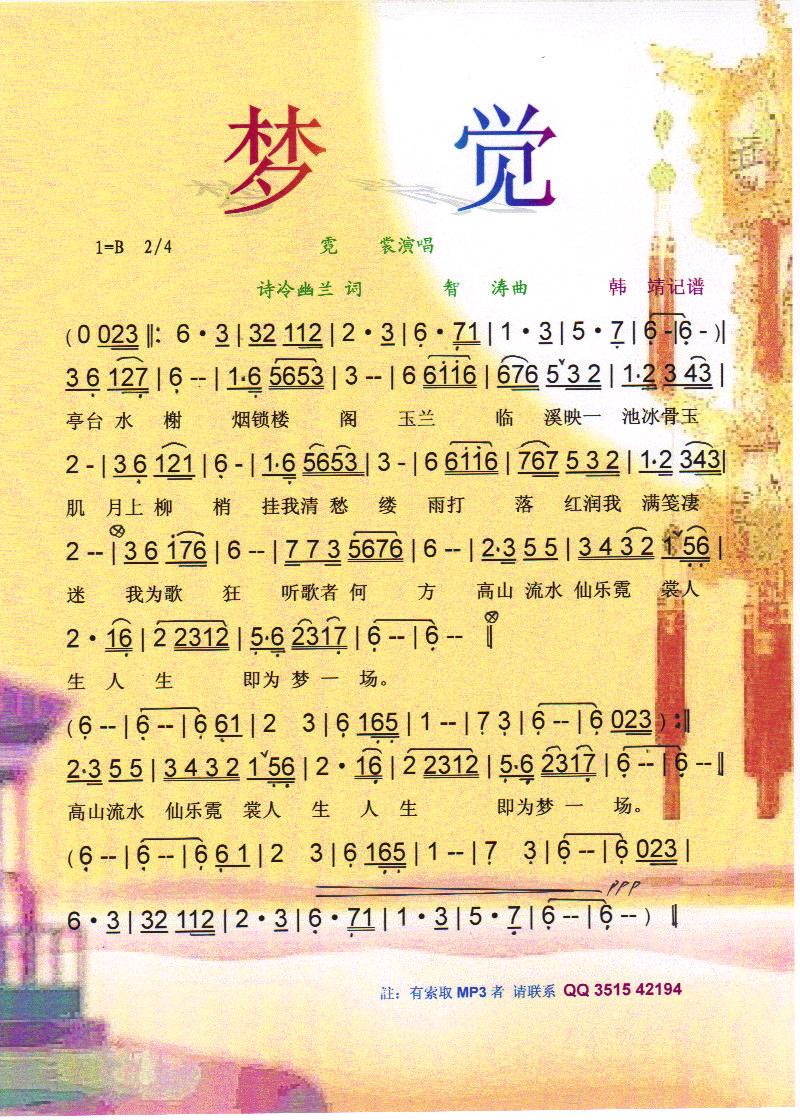 梦 觉
1=B 2/4 霓 裳演唱
诗冷幽兰 词 智 涛曲 韩 靖记谱
( 0 023 ‖: 6 · 3 | 32 112 | 2 · 3 | 6 · 71 | 1 · 3 | 5 · 7 | 6 - | 6 - ) |
3 6 127 | 6 -- | 1·6 5653 | 3 -- | 6 6116 | 676 5 3 2 | 1·2 3 43 |
亭台 水 榭 烟锁楼 阁 玉兰 临 溪映一 池冰骨玉
2 - | 3 6 121 | 6 - | 1·6 5653 | 3 - | 6 6116 | 767 5 3 2 | 1·2 343 |
肌 月上 柳 梢 挂我清 愁 缕 雨打 落 红润我 满笺凄
2 -- | 3 6 176 | 6 -- | 7 7 3 5676 | 6 -- | 2·3 5 5 | 3 4 3 2 1 56 |
迷 我为歌 狂 听歌者 何 方 高山 流水 仙乐霓 裳人
2 · 16 | 2 2312 | 5·6 2317 | 6 -- | 6 -- ‖
生 人 生 即为 梦 一 场。
( 6 -- | 6 -- | 6 61 | 2 3 | 6 165 | 1 -- | 7 3 | 6 -- | 6 023 ) :‖
2·3 5 5 | 3 4 3 2 1 56 | 2 · 16 | 2 2312 | 5·6 2317 | 6 -- | 6 -- ‖
高山流水 仙乐霓 裳人 生 人 生 即为梦 一 场。
( 6 -- | 6 -- | 6 6 1 | 2 3 | 6 165 | 1 -- | 7 3 | 6 -- | 6 023 |
ppp
6 · 3 | 32 112 | 2 · 3 | 6 · 71 | 1 · 3 | 5 · 7 | 6 -- | 6 -- ) ‖
註：有索取 MP3 者 请联系 QQ 3515 42194